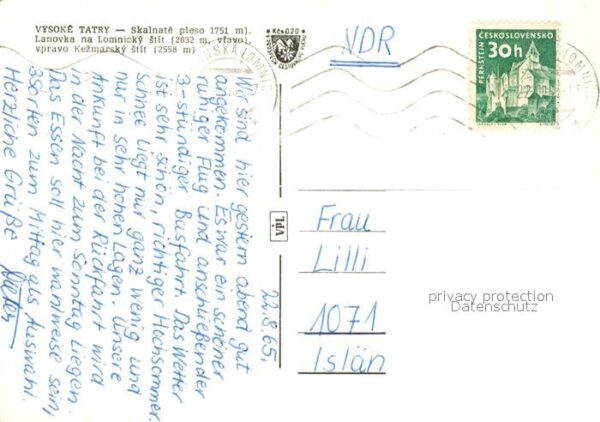 VYSOKÉ TATRY — Skalnaté pleso 1751 m).
Lanovka na Lomnický štít (2632 m, vľavo),
vpravo Kežmarský štít (2558 m)
Kčs 0,20
VDR
ČESKOSLOVENSKO
30h
PERNŠTEJN
22.8.65
Wir sind hier gestern abend gut
angekommen. Es war ein schöner
ruhiger Flug und anschließender
3-stündiger Busfahrt. Das Wetter
ist sehr schön, richtiger Hochsommer.
Schnee liegt nur ganz wenig und
nur in sehr hohen Lagen. Unsere
Ankunft bei der Rückfahrt wird
in der Nacht zum Sonntag liegen.
Das Essen soll hier wahlweise sein,
3 Sorten zum Mittag als Auswahl.
Herzliche Grüße
VPL
Frau
Lilli
1071
Islän
privacy protection
Datenschutz